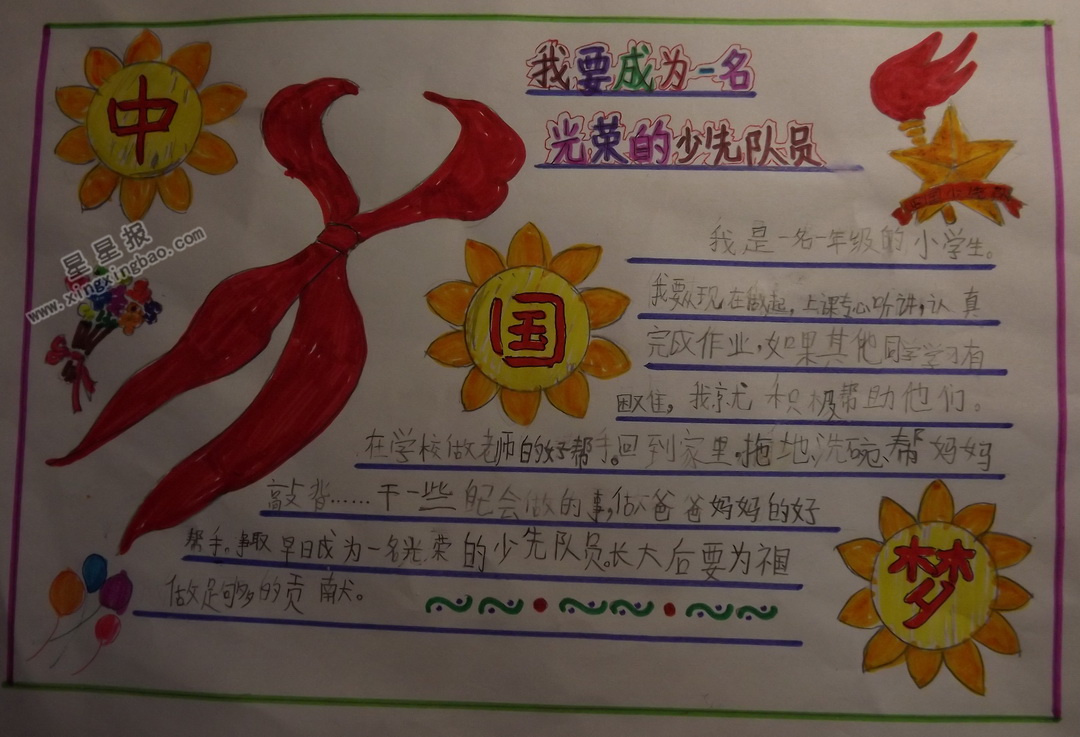 中
国
梦
我要成为一名
光荣的少先队员
我是一名一年级的小学生。
我要从现在做起，上课专心听讲，认真
完成作业，如果其他同学学习有
困难，我就积极帮助他们。
在学校做老师的好帮手。回到家里，拖地、洗碗、帮妈妈
敲背……干一些自己会做的事，做爸爸妈妈的好
帮手。争取早日成为一名光荣的少先队员。长大后要为祖国
做足够多的贡献。
星星报
www.xingxingbao.com